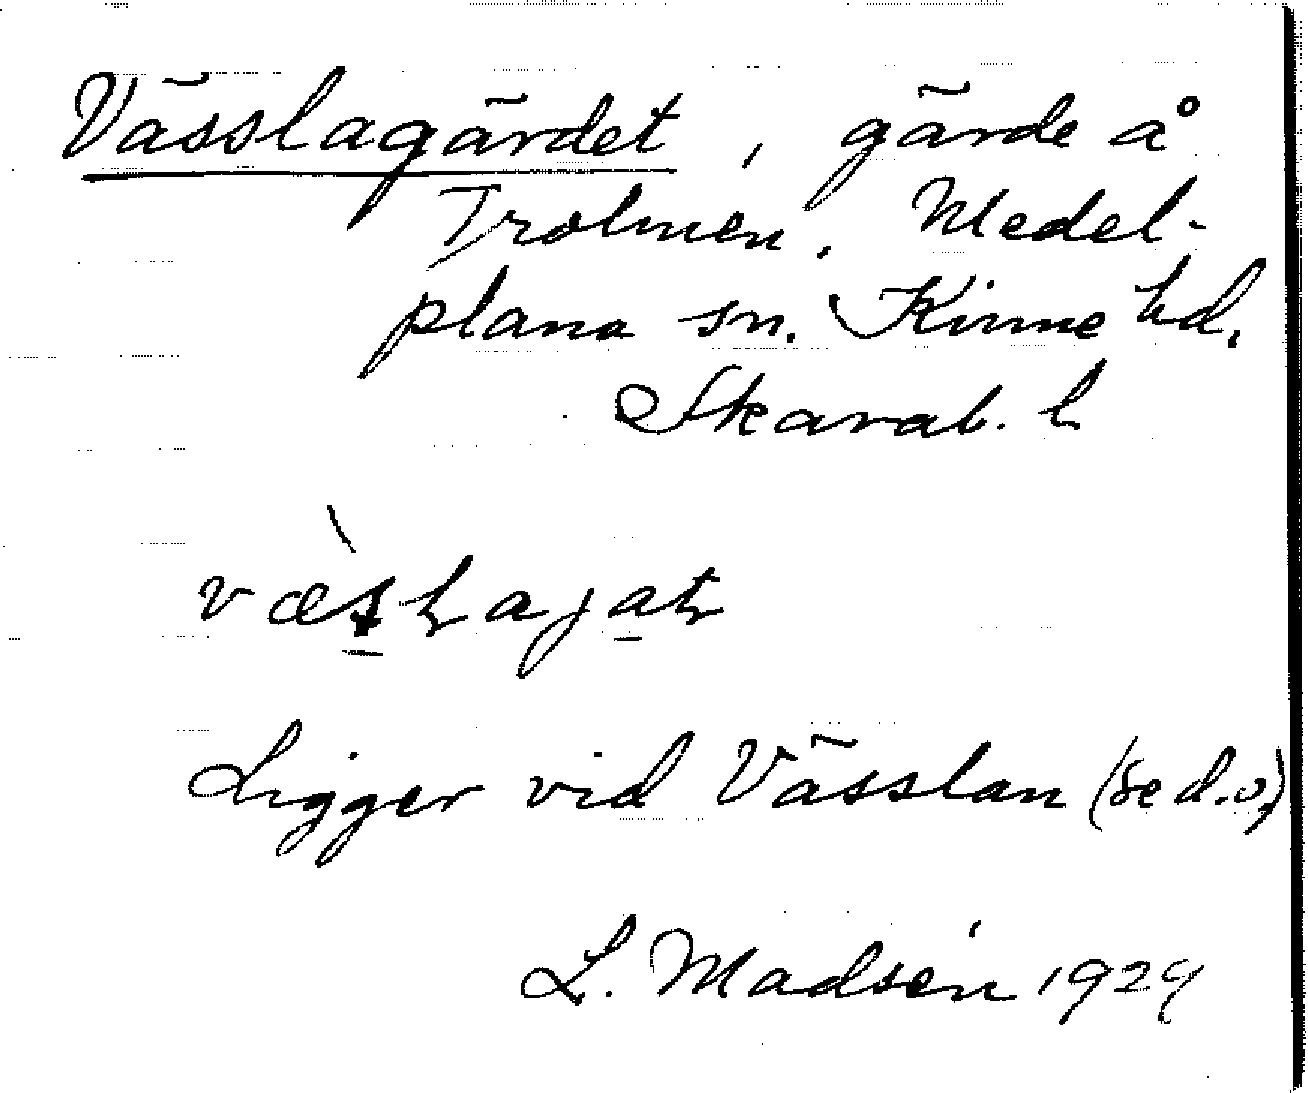 Vässlagärdet, gärde å
Trolmen. Medel-
plana sn. Kinne hd,
Skarab. l
Ligger vid Vässlan (se d.o.)
L. Madsén 1929